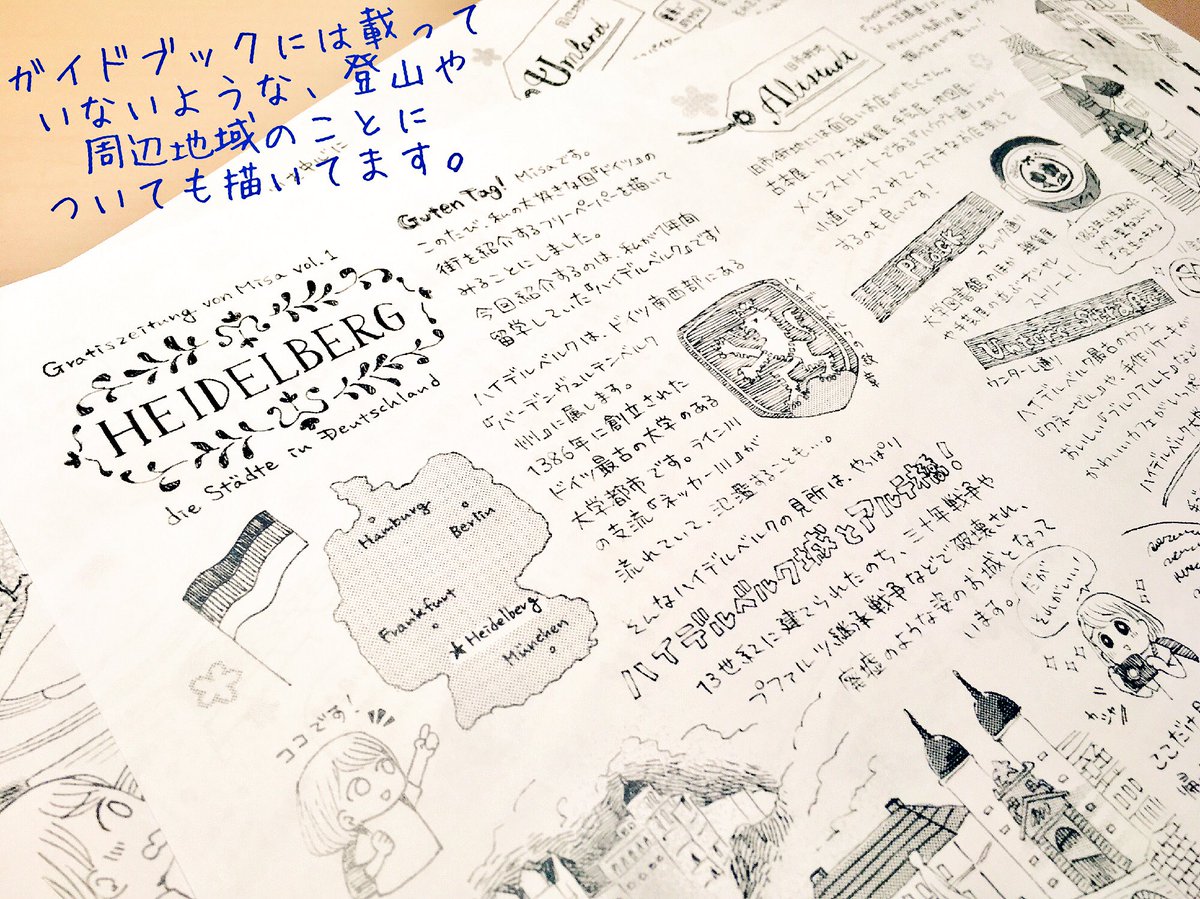 ガイドブックには載って
いないような、登山や
周辺地域のことに
ついても描いてます。
Gratiszeitung von Misa vol.1
HEIDELBERG
die Städte in Deutschland
Hamburg
Berlin
Frankfurt
★Heidelberg
München
ココです!
Guten Tag! Misaです。
このたび、私の大好きな国『ドイツ』の
街を紹介するフリーペーパーを描いて
みることにしました。
今回紹介するのは、私が1年間
留学していた『ハイデルベルク』です!
ハイデルベルクは、ドイツ南西部にある
『バーデンヴュルテンベルク
州』に属します。
1386年に創立された
ドイツ最古の大学のある
大学都市です。ライン川
の支流『ネッカー川』が
流れていて、氾濫することも…。
そんなハイデルベルクの見所は、やっぱり
ハイデルベルク城とアルテ橋!
13世紀に建てられたのち、三十年戦争や
プファルツ継承戦争などで破壊され、
廃墟のような姿のお城となって
います。
だが
それがいい!
カシャ!
ここだけ
Umland
Altstadt
旧市街
旧市街地には面白いお店がたくさん。
メインストリートである
小道に入ってみて、ステキなお店を
するのも良いです。
Plöck
プレック通り
大学図書館のほか、雑貨屋
ストリート!
Untere Straße
ウンターレ通り
ハイデルベルク最古のカフェ
『クネーゼル』や、手作りケーキが
おいしい
かわいいカフェがいっぱい